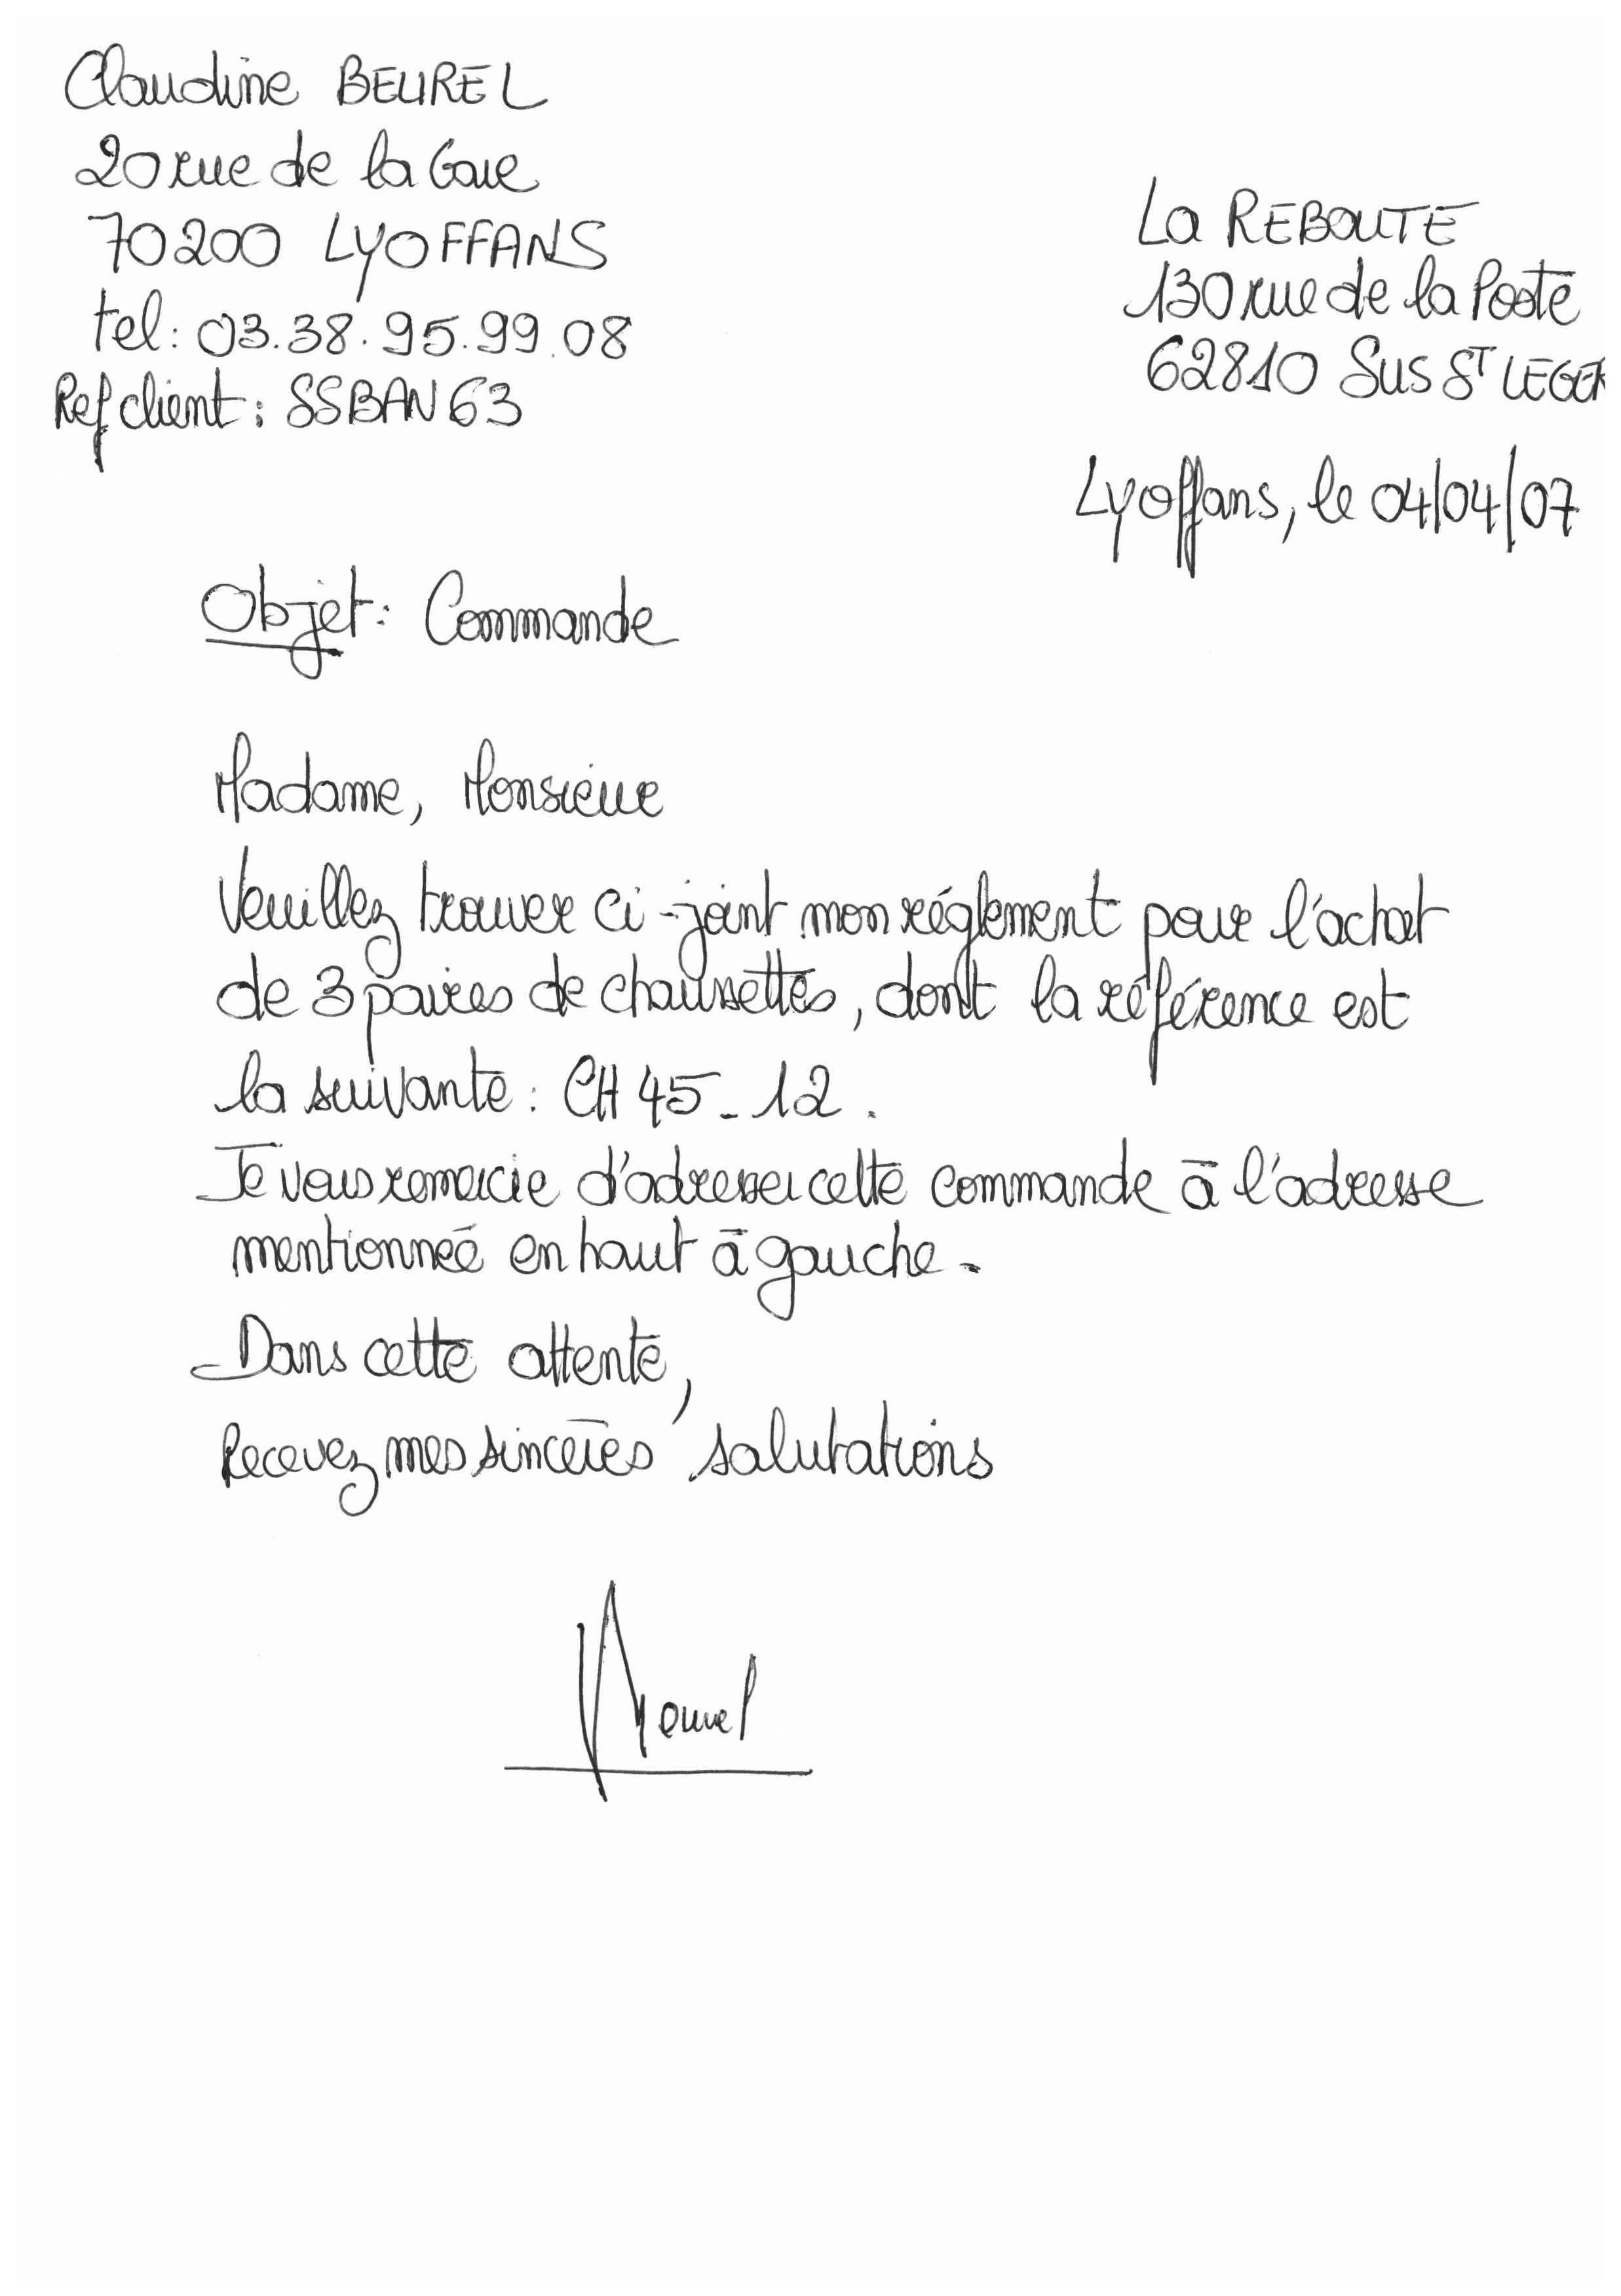 Claudine BEUREL
20 rue de la Gare
70200 LYOFFANS
tel: 03.38.95.99.08
Ref client: SSBAN63
La REBOUTE
130 rue de la Poste
62810 Sus St LEGER
Lyoffans, le 04/04/07
Objet: Commande
Madame, Monsieur
Veuillez trouver ci-joint mon réglement pour l'achat
de 3 paires de chaussettes, dont la référence est
la suivante: CH 45-12.
Je vous remercie d'adresser cette commande à l'adresse
mentionneé en haut à gauche.
Dans cette attente,
Recevez mes sincères salutations